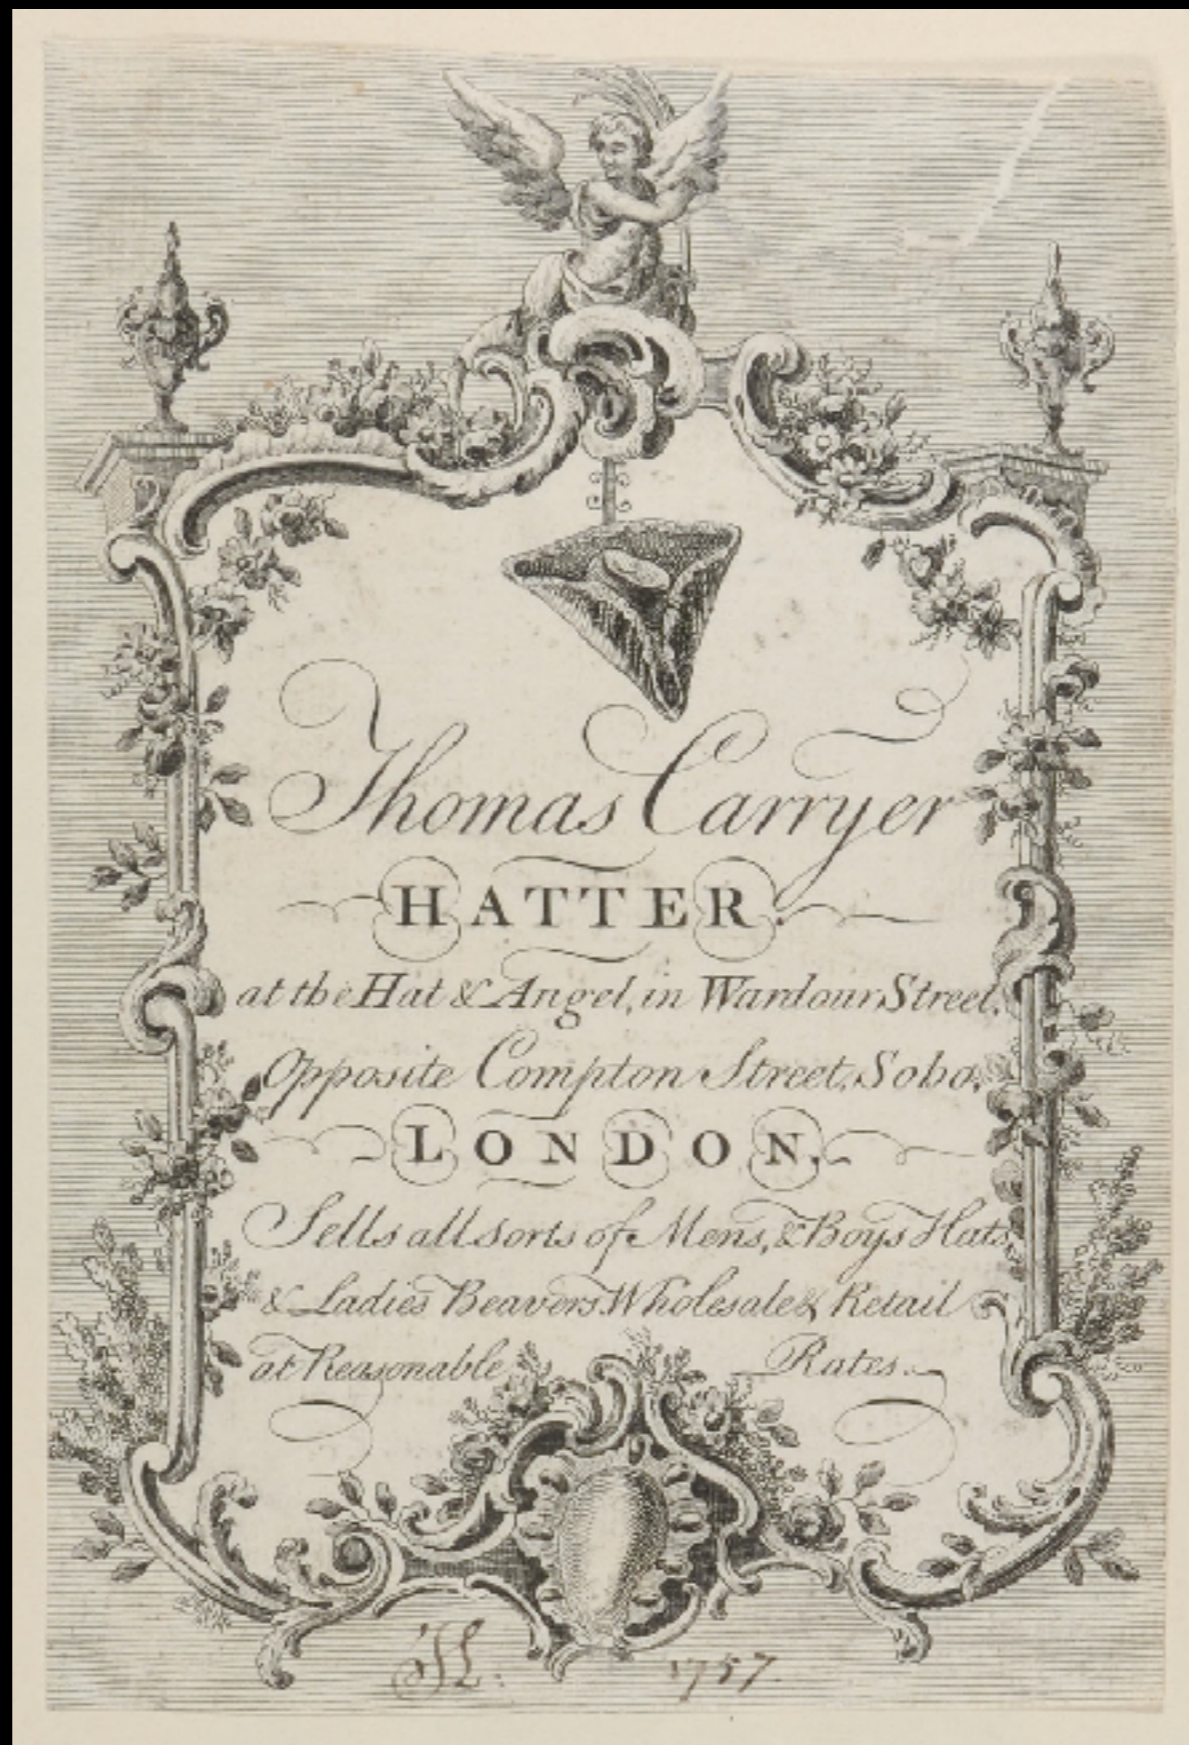 Thomas Carryer
HATTER.
at the Hat & Angel, in Wardour Street,
Opposite Compton Street, Soho,
LONDON,
Sells all sorts of Mens, & Boys Hats,
& Ladies Beavers Wholesale & Retail
at Reasonable Rates.
1757.